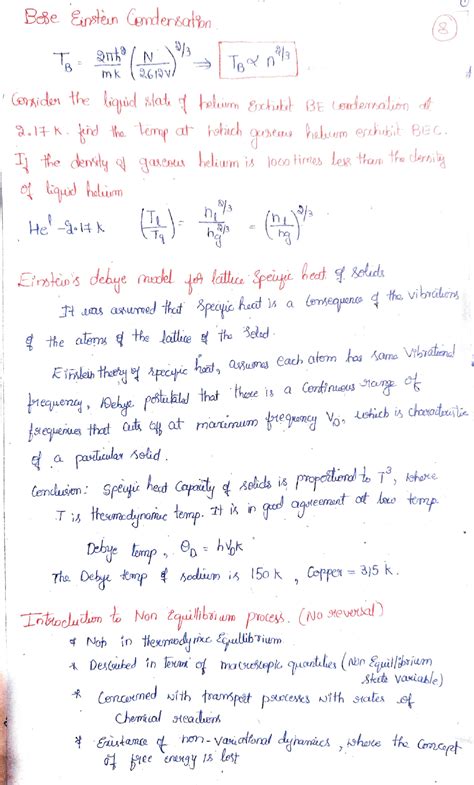 Bose Einstein Condensation
8
T_B = 2πħ²/mk (N/2.612V)^2/3 ⇒ T_B ∝ n^2/3
Consider the liquid state of helium Exhibit BE condensation at
2.17 K. find the temp at which gaseous helium exhibit BEC.
If the density of gaseous helium is 1000 times less than the density
of liquid helium
He - 2.17 K (T_l/T_g) = n_l^2/3 / n_g^2/3 = (n_l/n_g)^2/3
Einstein's debye model for lattice Specific heat of Solids
It was assumed that Specific heat is a Consequence of the vibrations
of the atoms of the lattice of the Solid.
Einstein theory of specific heat, assumes each atom has same Vibrational
frequency, Debye postulated that there is a Continuous range of
frequencies that cuts off at maximum frequency V_D, which is characteristic
of a particular solid.
Conclusion: Specific heat Capacity of solids is proportional to T³, where
T is thermodynamic temp. It is in good agreement at low temp.
Debye temp, Θ_D = hV_D k
The Debye temp of sodium is 150 K, Copper = 315 K.
Introduction to Non Equillibrium process. (No reversal)
* Not in thermodynamic Equilibrium
* Described in Terms of macroscopic quantities (Non Equillibrium
State Variable)
* Concerned with transport processes with rates of
Chemical reactions
* Existance of non-variational dynamics, where the Concept
of free energy is lost